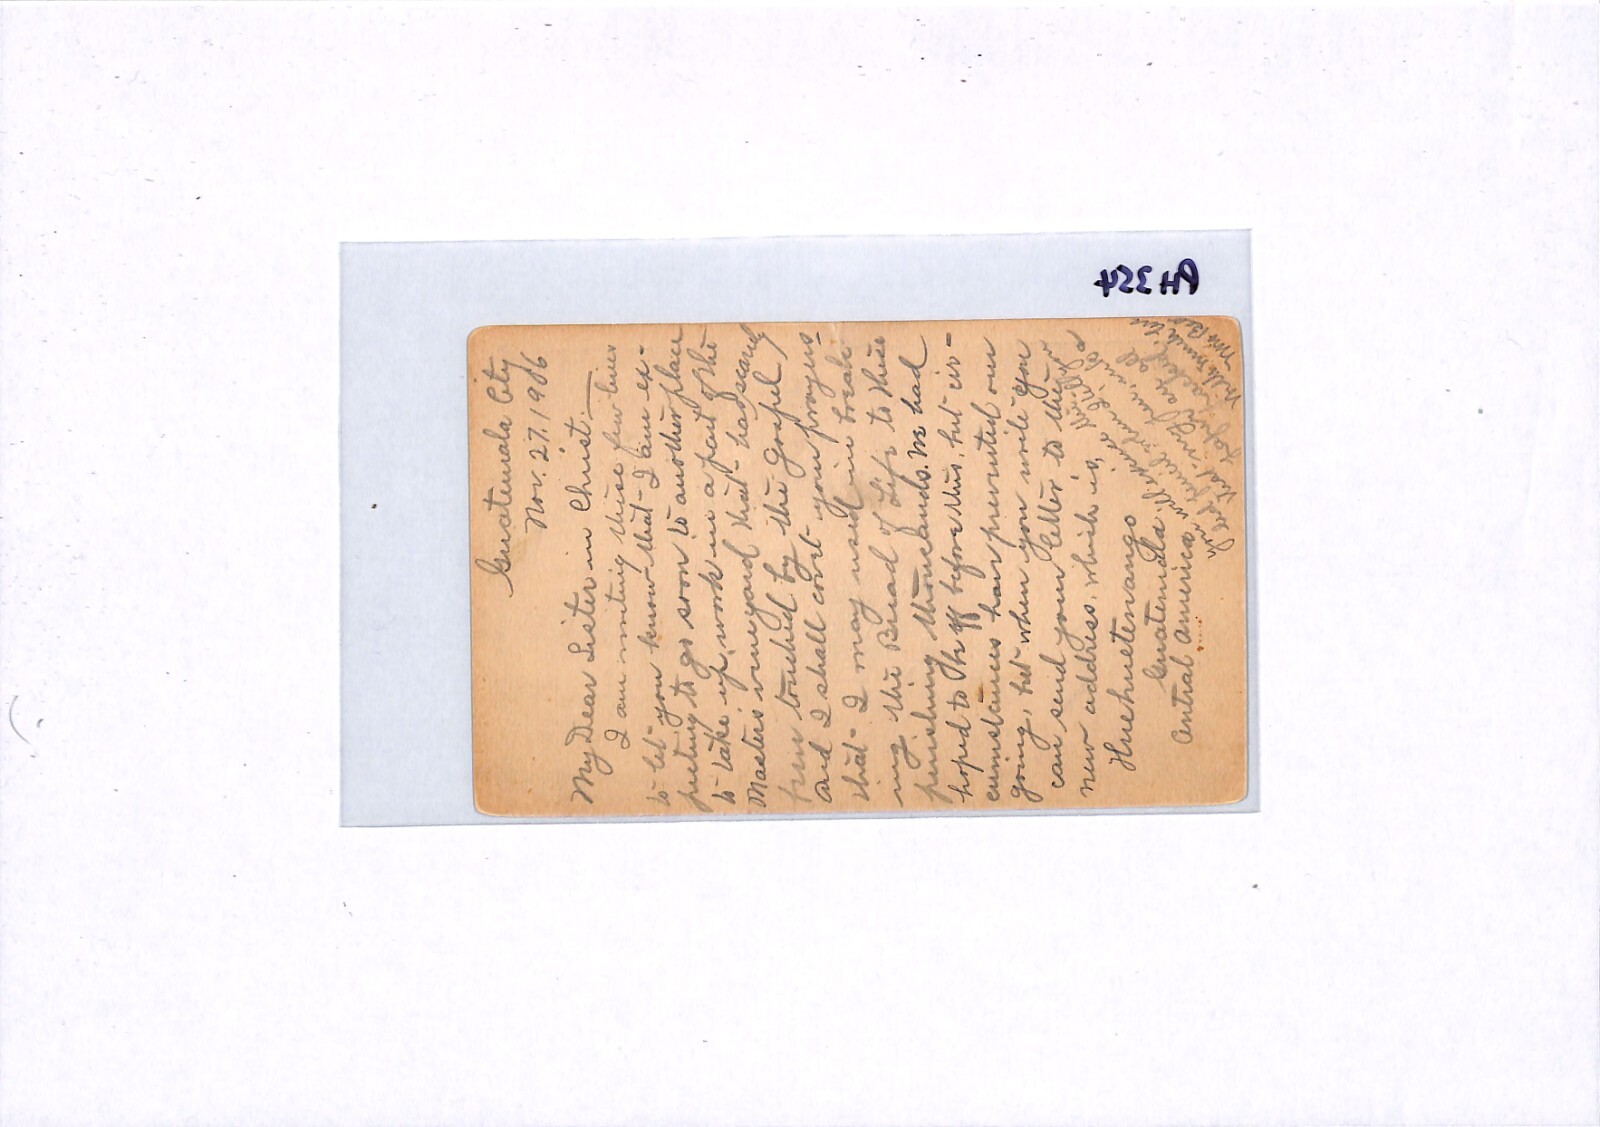 AH 3324
Guatemala City
Nov. 27. 1906
My Dear Sister in Christ:—
I am writing these few lines
to let you know that I am ex-
pecting to go soon to another place
to take up work in a part of the
Masters vineyard that has scarcely
been touched by the Gospel,
and I shall covet your prayers
that I may used in break-
ing the Bread of Life to these
perishing thousands. We had
hoped to be off before this, but cir-
cumstances have prevented our
going, but when you write you
can send your letter to the
new address, which is,
Huehuetenango
Guatemala
Central America
will
send
Hoping
all
With much